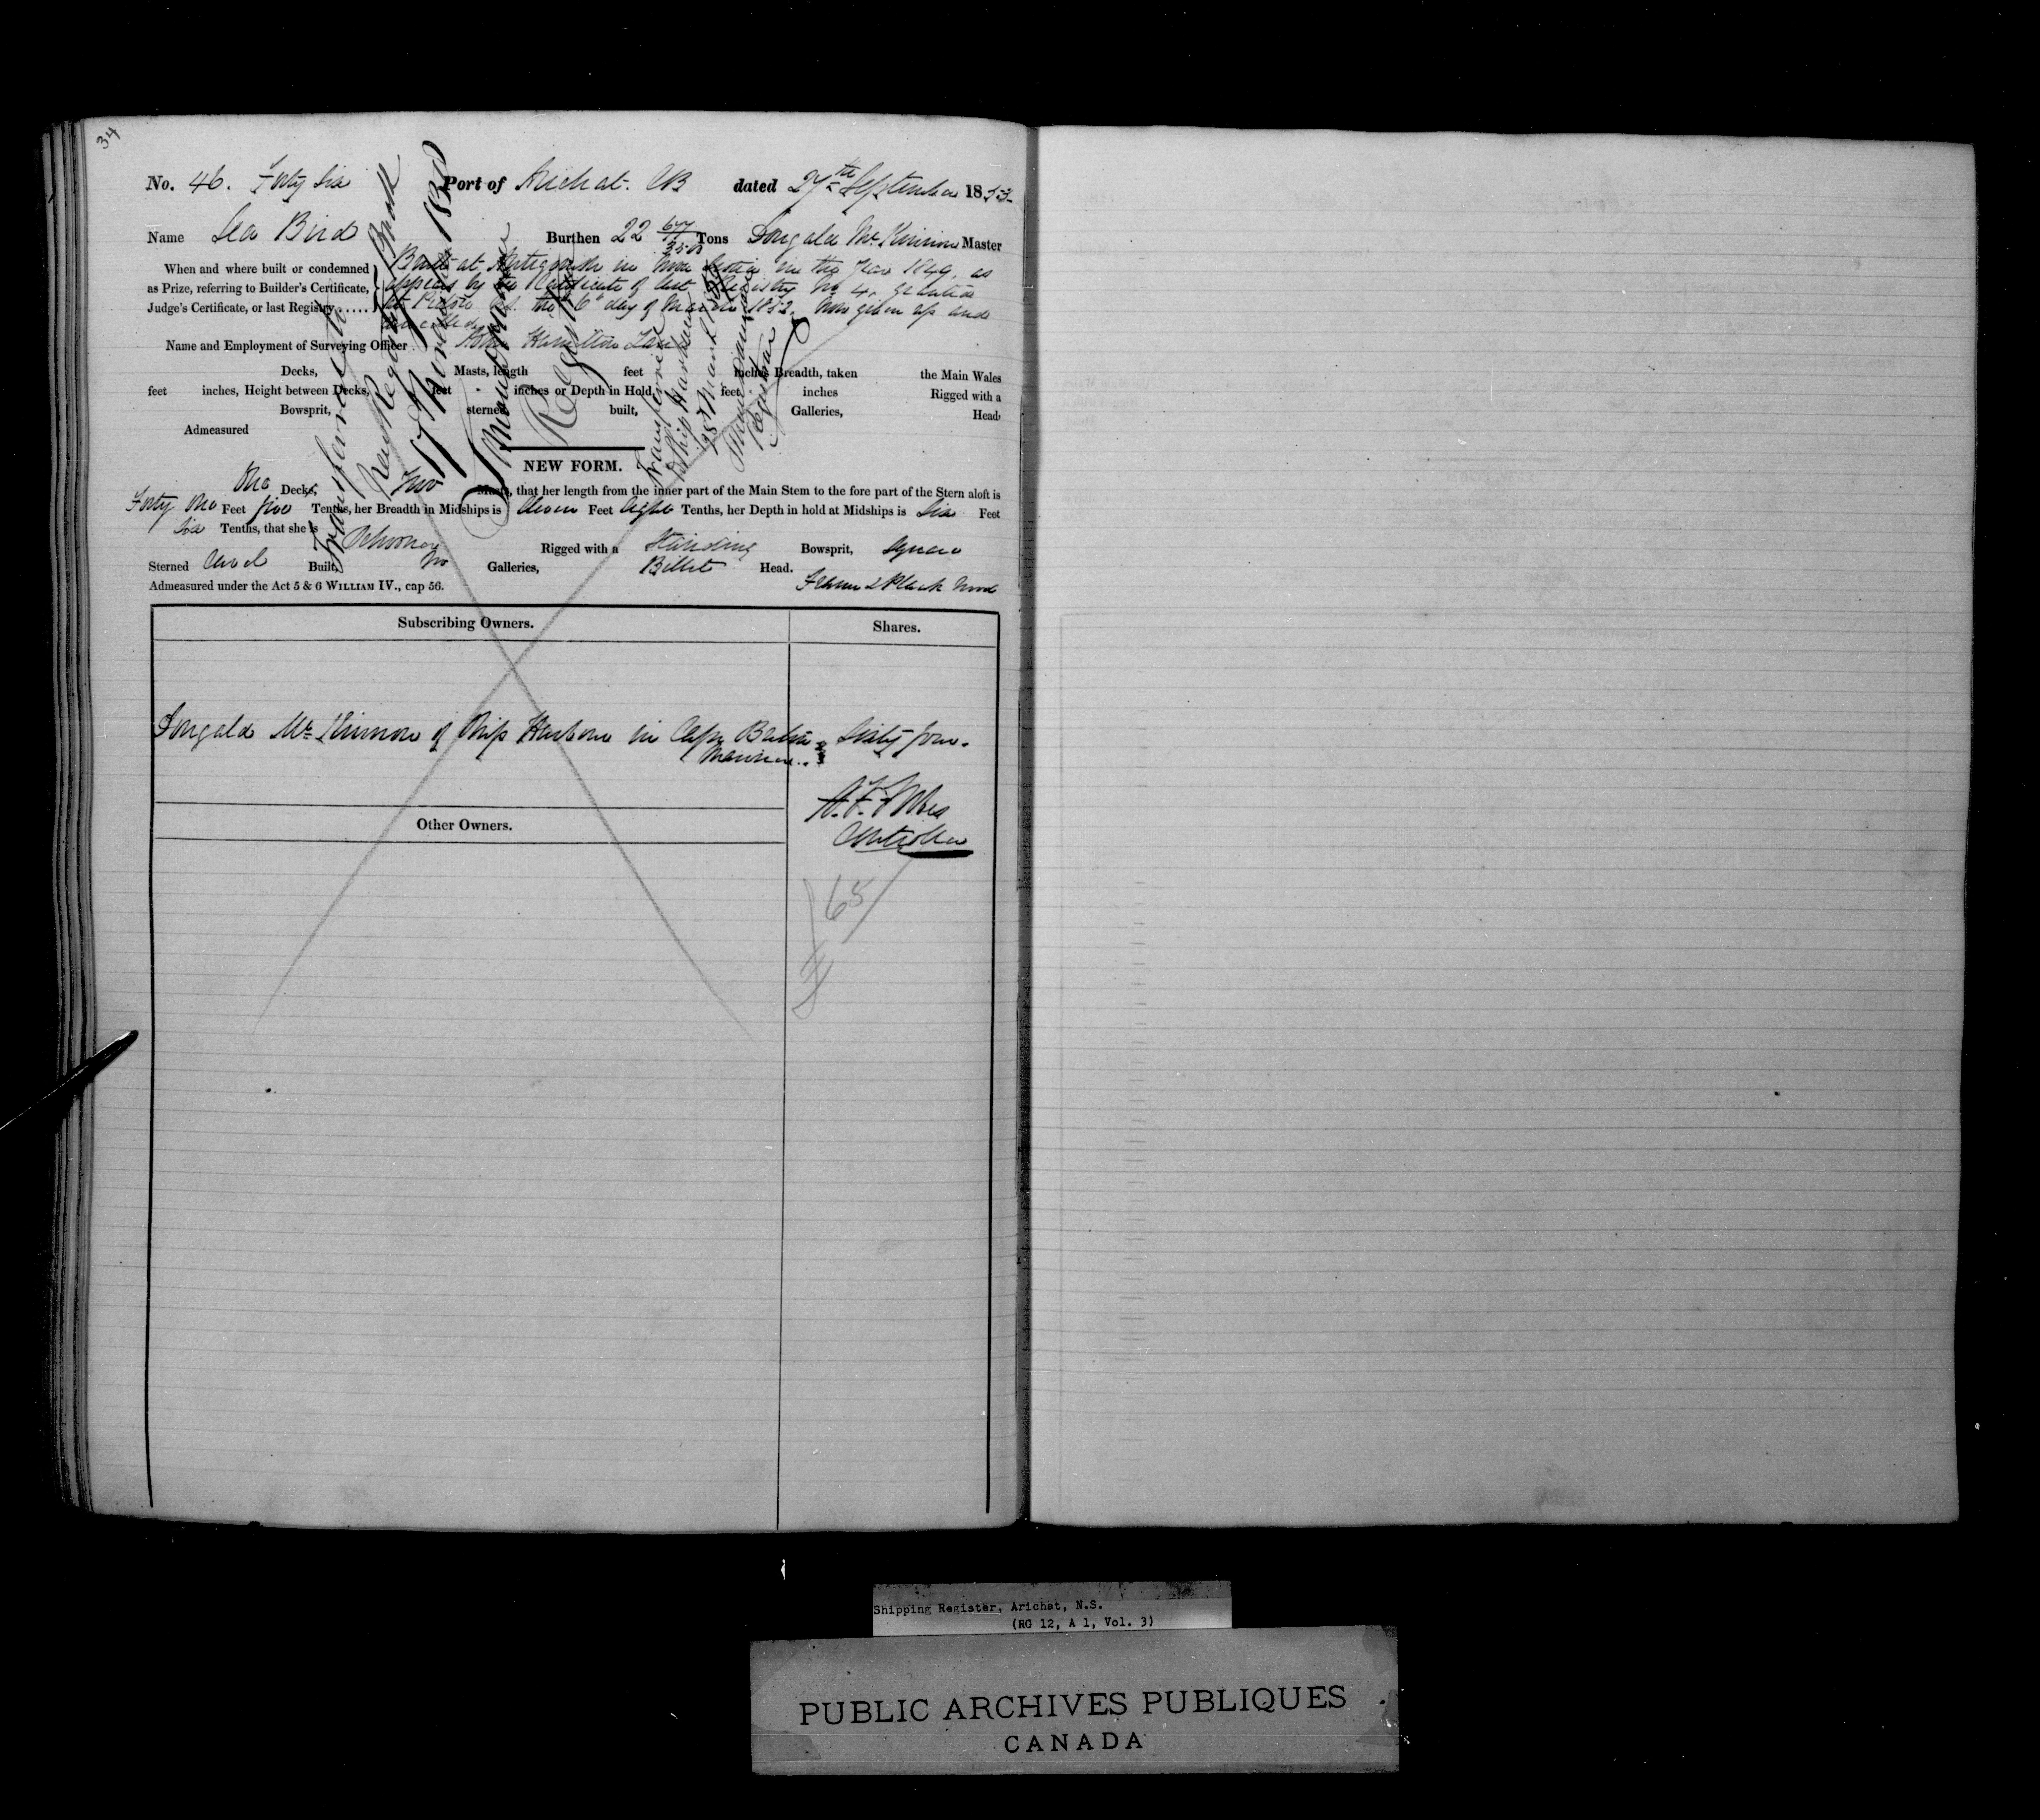 34
No. 46. Forty Six Port of Arichat. CB dated 27th September 1853
Name Sea Bird Burthen 22 Tons Dougald Mc Kinnon Master
When and where built or condemned Built at Antigonish in Nova Scotia in the Year 1849, as
as Prize, referring to Builder's Certificate, appears by the Certificate of last Registry No 4. granted
Judge's Certificate, or last Registry..... at Pictou N.S. the 6th day of March 1852, now given up and
cancelled
Name and Employment of Surveying Officer . John Hamilton Lane
Decks, Masts, length feet inches Breadth, taken the Main Wales
feet inches, Height between Decks, feet inches or Depth in Hold, feet inches Rigged with a
Bowsprit, sterned, built, Galleries, Head
Admeasured
Transferred to
New Register Book
Registrar
Transferred
Ship Harbour
Registrar
NEW FORM.
One Decks, Two Masts, that her length from the inner part of the Main Stem to the fore part of the Stern aloft is
Forty One Feet five Tenths, her Breadth in Midships is Eleven Feet Eight Tenths, her Depth in hold at Midships is Six Feet
Six Tenths, that she is Schooner Rigged with a Standing Bowsprit, Square
Sterned Carvel Built, No Galleries, Billet Head.
Admeasured under the Act 5 & 6 WILLIAM IV., cap 56. Frame & Plank Wood
Subscribing Owners. Shares.
Dougald Mc Kinnon of Ship Harbour in Cape Breton Sixty four.
Mariner..
Controller
Other Owners.
65
Shipping Register, Arichat, N.S.
(RG 12, A 1, Vol. 3)
PUBLIC ARCHIVES PUBLIQUES
CANADA